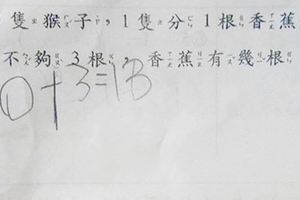 隻猴子，1隻分1根香蕉
不夠3根，香蕉有幾根
0+3=13